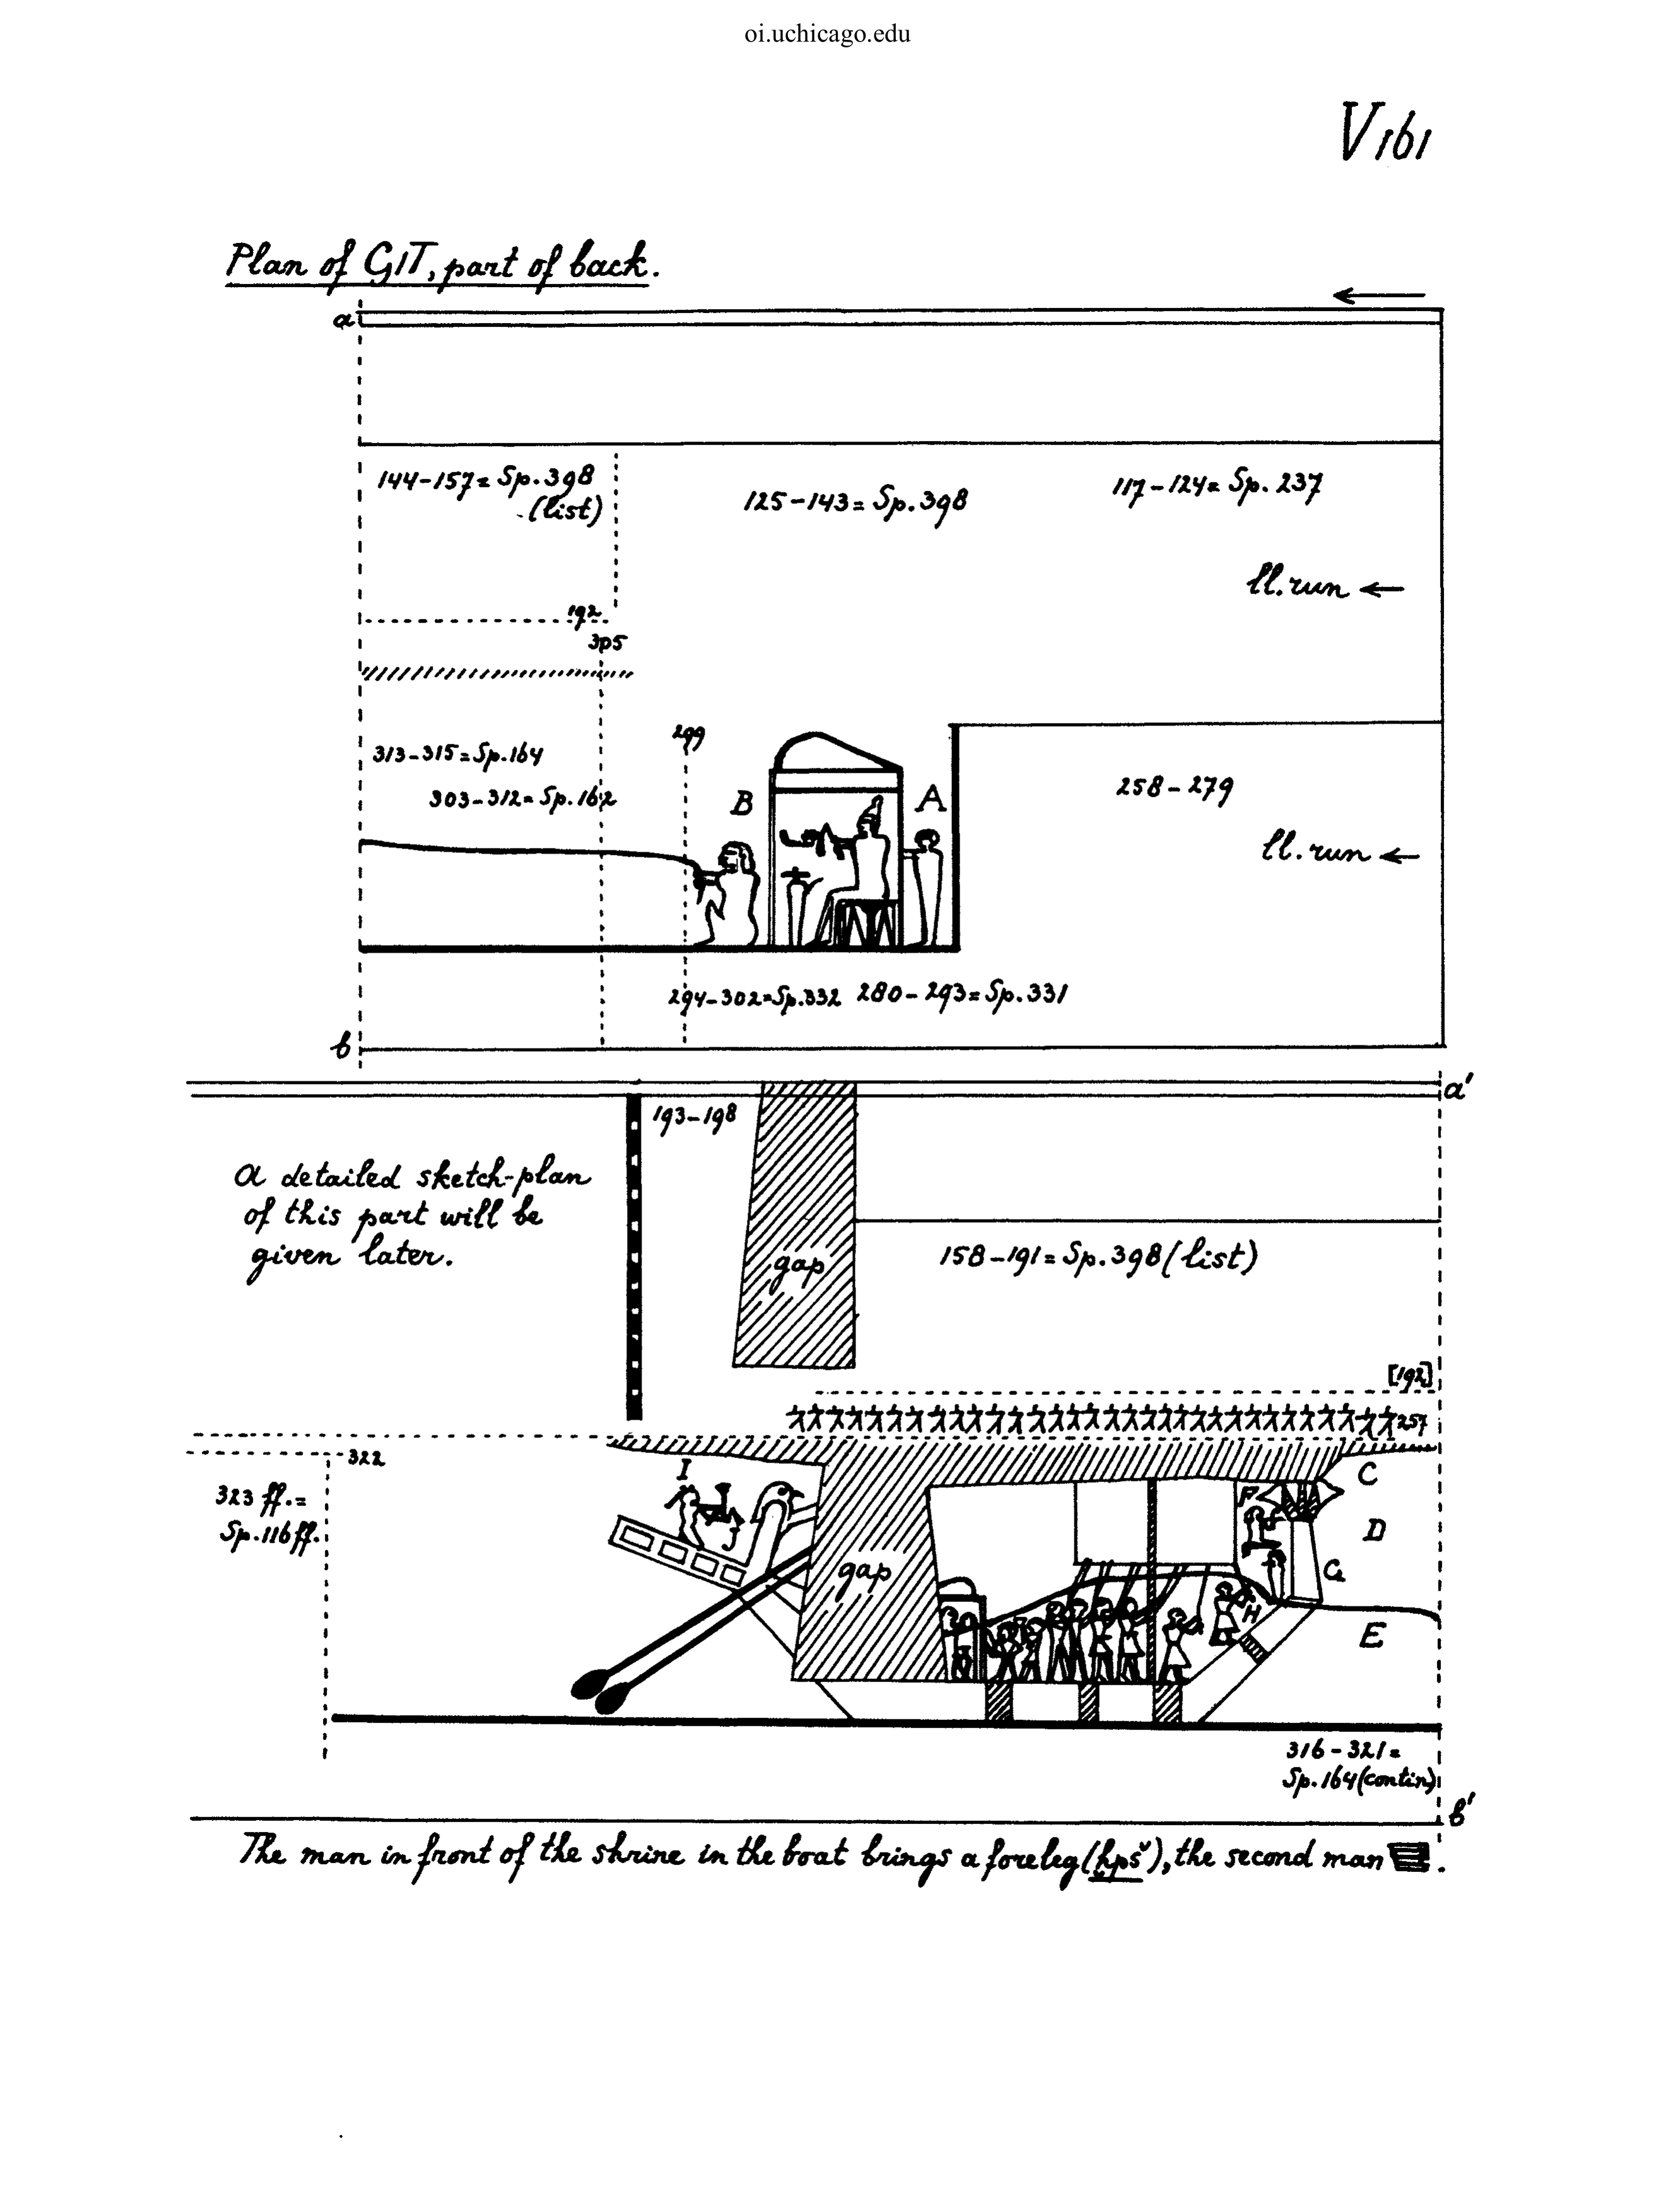 oi.uchicago.edu
V 161
Plan of G1T, part of back.
a
144-157= Sp. 398
(list)
125-143= Sp. 398
117-124= Sp. 237
ll. run ←
192
305
299
313-315= Sp. 164
303-312= Sp. 162
B
A
258-279
ll. run ←
294-302= Sp. 332
280-293= Sp. 331
b
a'
193-198
A detailed sketch-plan
of this part will be
given later.
gap
158-191= Sp. 398 (list)
[192]
257
322
323 ff. =
Sp. 116 ff.
I
gap
F
C
D
G
H
E
316-321=
Sp. 164 (contin)
b'
The man in front of the shrine in the boat brings a foreleg (ḫpš), the second man